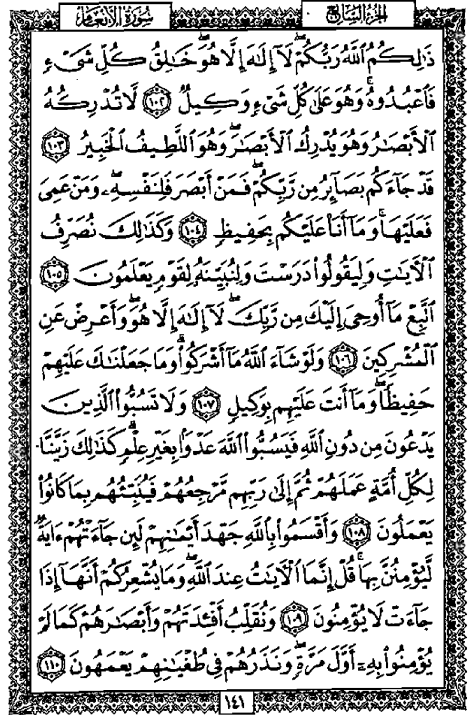 سورة الأنعام الجزء السابع
ذَٰلِكُمُ ٱللَّهُ رَبُّكُمْ ۖ لَآ إِلَٰهَ إِلَّا هُوَ ۖ خَٰلِقُ كُلِّ شَىْءٍ
فَٱعْبُدُوهُ ۚ وَهُوَ عَلَىٰ كُلِّ شَىْءٍ وَكِيلٌ ١٠٢ لَّا تُدْرِكُهُ
ٱلْأَبْصَٰرُ وَهُوَ يُدْرِكُ ٱلْأَبْصَٰرَ ۖ وَهُوَ ٱللَّطِيفُ ٱلْخَبِيرُ ١٠٣
قَدْ جَآءَكُم بَصَآئِرُ مِن رَّبِّكُمْ ۖ فَمَنْ أَبْصَرَ فَلِنَفْسِهِۦ ۖ وَمَنْ عَمِىَ
فَعَلَيْهَا ۚ وَمَآ أَنَا۠ عَلَيْكُم بِحَفِيظٍ ١٠٤ وَكَذَٰلِكَ نُصَرِّفُ
ٱلْءَايَٰتِ وَلِيَقُولُوا۟ دَرَسْتَ وَلِنُبَيِّنَهُۥ لِقَوْمٍ يَعْلَمُونَ ١٠٥
ٱتَّبِعْ مَآ أُوحِىَ إِلَيْكَ مِن رَّبِّكَ ۖ لَآ إِلَٰهَ إِلَّا هُوَ ۖ وَأَعْرِضْ عَنِ
ٱلْمُشْرِكِينَ ١٠٦ وَلَوْ شَآءَ ٱللَّهُ مَآ أَشْرَكُوا۟ ۗ وَمَا جَعَلْنَٰكَ عَلَيْهِمْ
حَفِيظًا ۖ وَمَآ أَنتَ عَلَيْهِم بِوَكِيلٍ ١٠٧ وَلَا تَسُبُّوا۟ ٱلَّذِينَ
يَدْعُونَ مِن دُونِ ٱللَّهِ فَيَسُبُّوا۟ ٱللَّهَ عَدْوًۢا بِغَيْرِ عِلْمٍ ۗ كَذَٰلِكَ زَيَّنَّا
لِكُلِّ أُمَّةٍ عَمَلَهُمْ ثُمَّ إِلَىٰ رَبِّهِم مَّرْجِعُهُمْ فَيُنَبِّئُهُم بِمَا كَانُوا۟
يَعْمَلُونَ ١٠٨ وَأَقْسَمُوا۟ بِٱللَّهِ جَهْدَ أَيْمَٰنِهِمْ لَئِن جَآءَتْهُمْ ءَايَةٌ
لَّيُؤْمِنُنَّ بِهَا ۚ قُلْ إِنَّمَا ٱلْءَايَٰتُ عِندَ ٱللَّهِ ۖ وَمَا يُشْعِرُكُمْ أَنَّهَآ إِذَا
جَآءَتْ لَا يُؤْمِنُونَ ١٠٩ وَنُقَلِّبُ أَفْـِٔدَتَهُمْ وَأَبْصَٰرَهُمْ كَمَا لَمْ
يُؤْمِنُوا۟ بِهِۦٓ أَوَّلَ مَرَّةٍ وَنَذَرُهُمْ فِى طُغْيَٰنِهِمْ يَعْمَهُونَ ١١٠
١٤١